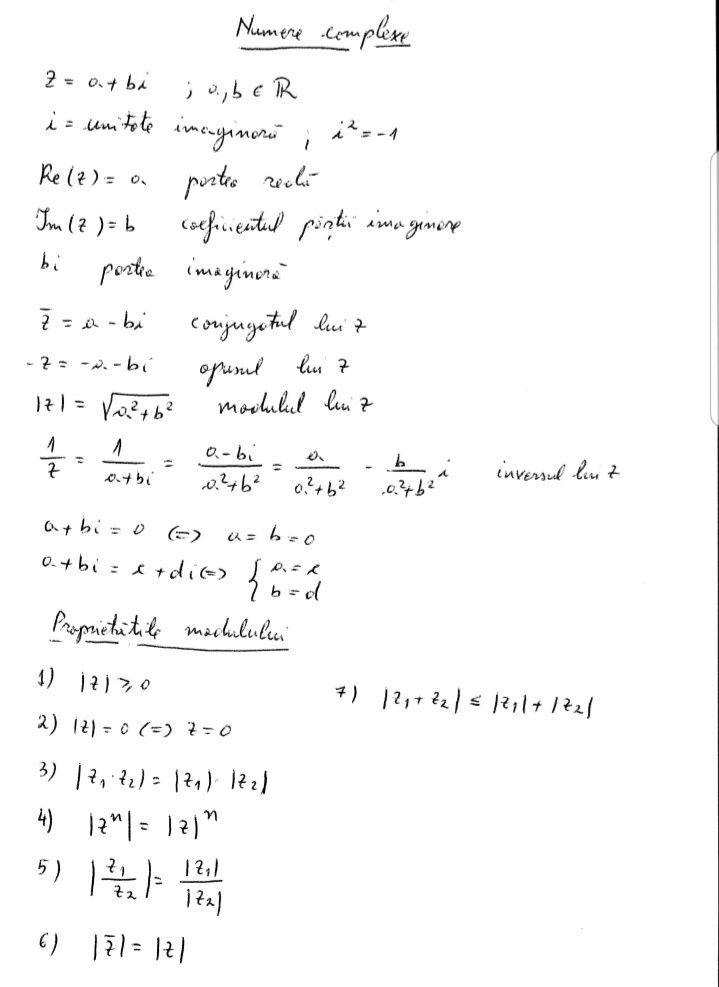 Numere complexe
z = a + bi ; a, b ∈ ℝ
i = unitate imaginară ; i² = -1
Re(z) = a partea reală
Im(z) = b coeficientul părții imaginare
bi partea imaginară
z̄ = a - bi conjugatul lui z
-z = -a - bi opusul lui z
|z| = √(a² + b²) modulul lui z
1/z = 1/(a + bi) = (a - bi)/(a² + b²) = a/(a² + b²) - b/(a² + b²) i inversul lui z
a + bi = 0 (=) a = b = 0
a + bi = c + di (=) { a = c
b = d
Proprietățile modulului
1) |z| ≥ 0
2) |z| = 0 (=) z = 0
3) |z₁ · z₂| = |z₁| · |z₂|
4) |zⁿ| = |z|ⁿ
5) |z₁/z₂| = |z₁|/|z₂|
6) |z̄| = |z|
7) |z₁ + z₂| ≤ |z₁| + |z₂|